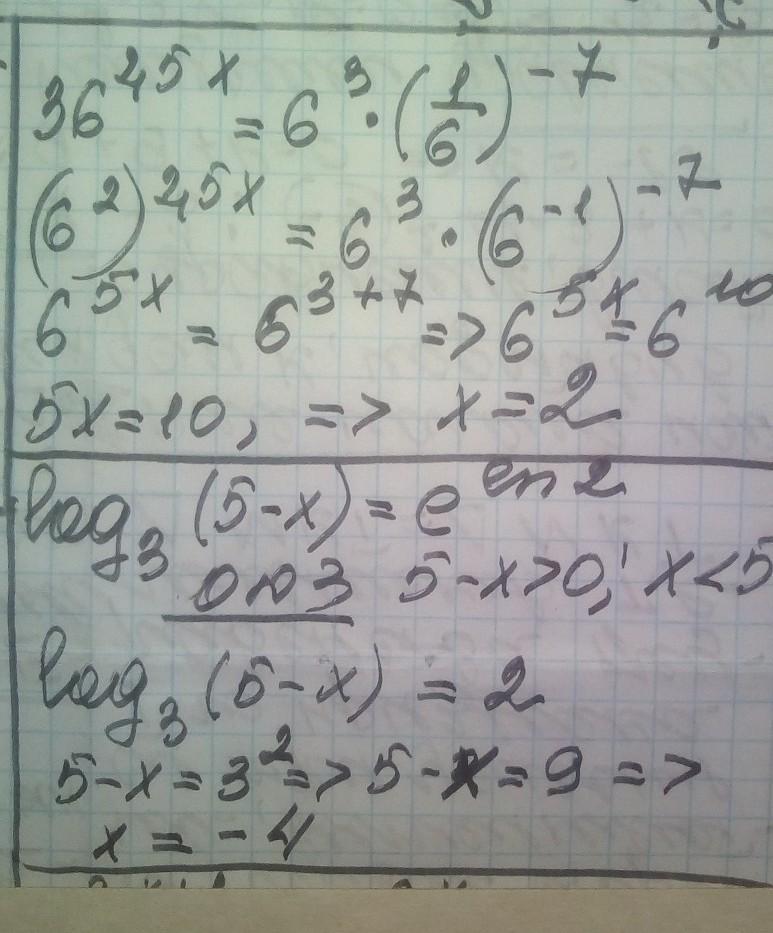 36^{2,5x} = 6^3 · (1/6)^{-7}
(6^2)^{2,5x} = 6^3 · (6^{-1})^{-7}
6^{5x} = 6^{3+7} => 6^{5x} = 6^{10}
5x = 10, => x = 2
log_3 (5-x) = e^{ln 2}
ОДЗ 5-x>0; x<5
log_3 (5-x) = 2
5-x = 3^2 => 5-x = 9 =>
x = -4